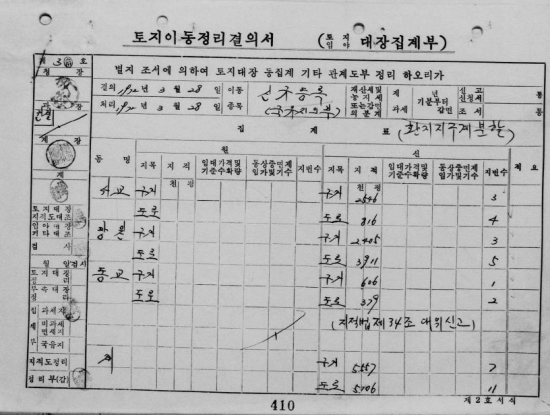 토지이동정리결의서 (토지 임야 대장집계부)
제 3 호
별지 조서에 의하여 토지대장 동집계 기타 관계도부 정리 하오리가
결의 1982년 3월 28일 이동 신규등록
처리 1982년 3월 28일 종목
재산세및 농지세 또는감면의 분계 제 년 기분부터 과세 감면 신고 신청서 통 통
집 계 표 (환지지구계분할)
동명 원 신 적요
지목 지적 임대가격및 기준수확량 동상중면제 임가및기수 지번수 지목 지적 임대가격및 기준수확량 동상중면제 임가및기수 지번수
천 평 천 평
서교 구거 구거 2546 3
도로 도로 816 4
망원 구거 구거 2405 3
도로 도로 3911 5
동교 구거 구거 606 1
도로 도로 379 2
(지적법 제34조 대위신고)
계 구거 5557 7
도로 5106 11
토지대장
지적도대조
임야대장
검사
월 일 검사
토지대장
부속대장
정리
과세지
비과세
면세지
국유지
지적도정리
정리부(갑)
410
제2호서식